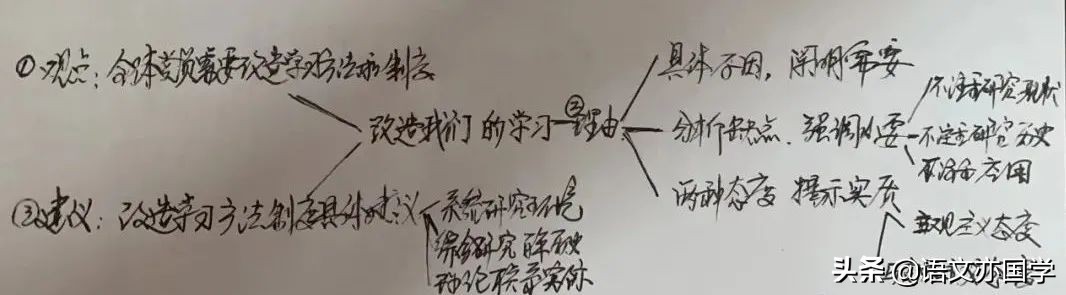 ①观点：全体党员需要改造学习方法和制度
改造我们的学习
②理由：
具体分析，阐明需要
分析缺点，强调必要
不注重研究现状
不注重研究历史
不注重应用
两种态度 揭示实质
主观主义态度
③建议：改造学习方法制度具体建议
系统研究环境
综合研究历史
理论联系实际
头条@语文亦国学